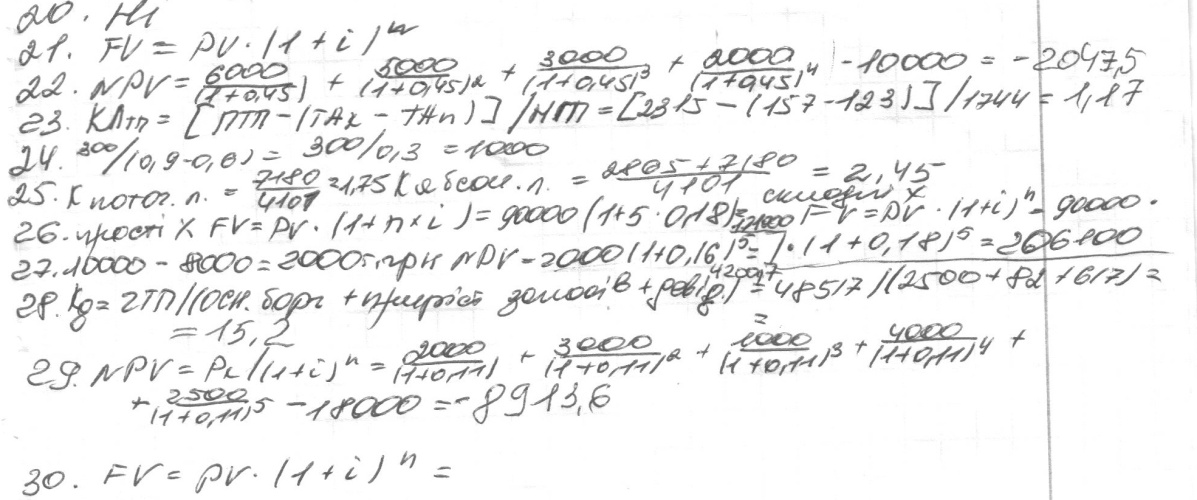 20. Ні
21. FV = PV · (1 + i)ⁿ
22. NPV = 6000/(1+0,45) + 5000/(1+0,45)² + 3000/(1+0,45)³ + 2000/(1+0,45)⁴ - 10000 = -2047,5
23. КЛтп = [ПТП - (ТАк - ТАп)] / НТП = [2315 - (157 - 123)] / 1744 = 1,17
24. 300/(0,9-0,6) = 300/0,3 = 1000
25. К поточ. л. = 7180/4101 = 1,75 К абсол. л. = 2865 + 7180/4101 = 2,45
26. прості % FV = PV · (1 + n × i) = 90000 (1 + 5 · 0,18) = 171000 складні % FV = PV · (1+i)ⁿ = 90000 ·
· (1 + 0,18)⁵ = 206100
27. 10000 - 8000 = 2000 т. грн NPV = 2000 (1 + 0,16)⁵ = 4200,7
28. Кg = ГТП/(Осн. борг + приріст запасів + дивід.) = 48517 / (2500 + 82 + 617) =
= 15,2
29. NPV = Pk / (1 + i)ⁿ = 2000/(1+0,11) + 3000/(1+0,11)² + 1000/(1+0,11)³ + 4000/(1+0,11)⁴ +
+ 2500/(1+0,11)⁵ - 18000 = -8913,6
30. FV = PV · (1 + i)ⁿ =